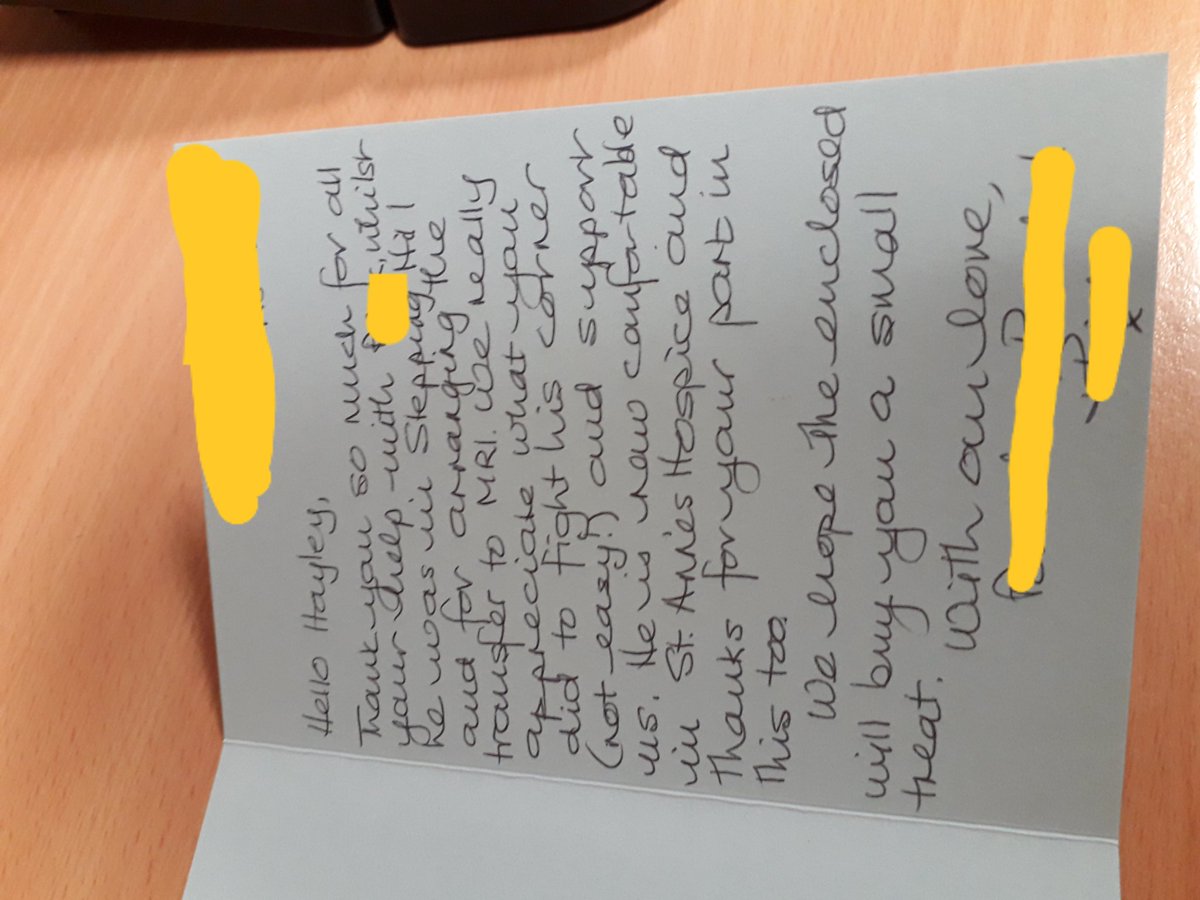 Hello Hayley,
Thank you so much for all
your help with whilst
he was in Stepping Hill
and for arranging the
transfer to MRI. We really
appreciate what you
did to fight his corner
(not easy!) and support
us. He is now comfortable
in St. Ann's Hospice and
thanks for your part in
this too.
We hope the enclosed
will buy you a small
treat.
With our love,
x